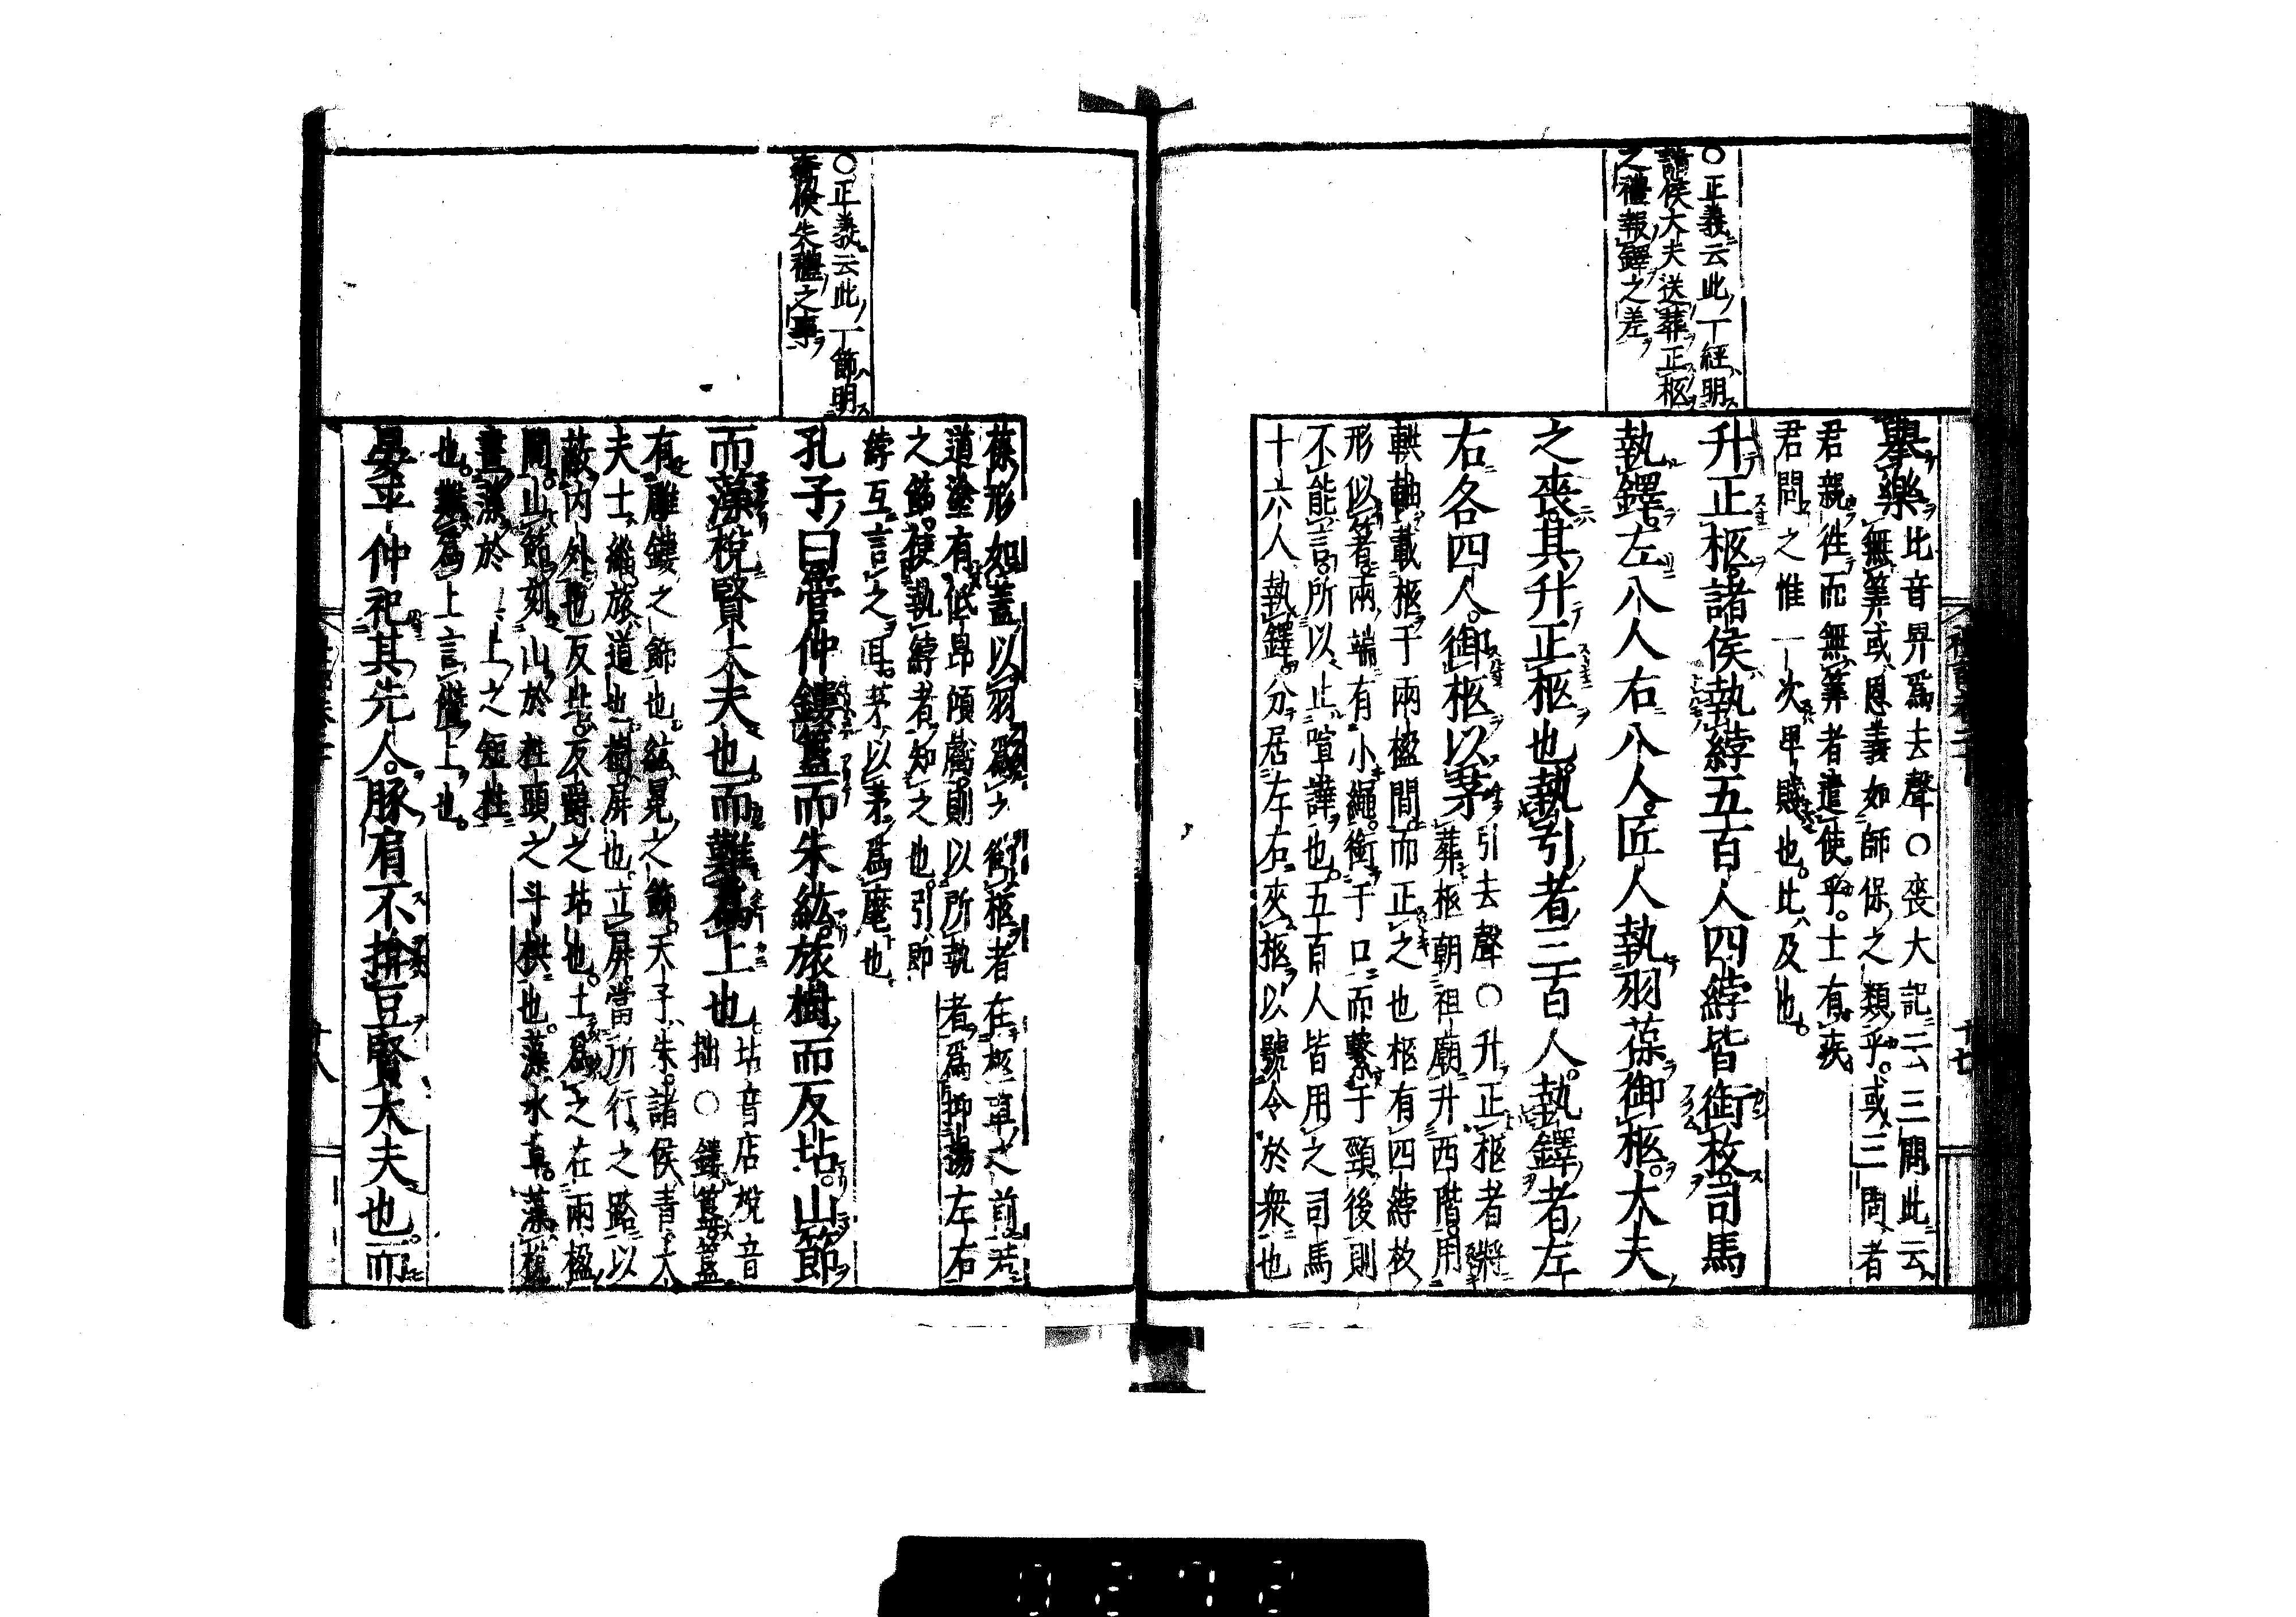 ○正義云此一經明
諸侯大夫送葬正柩
之禮報鐸之差
舉樂比音畀爲去聲○喪大記云三問此云
無筭或恩義如師保之類乎或三問者
君親徃而無筭者遣使乎士有疾
君問之惟一次卑賤也比及也
升正柩諸侯執綍五百人四綍皆銜枚司馬
執鐸左八人右八人匠人執羽葆御柩大夫
之喪其升正柩也執引者三百人執鐸者左
右各四人御柩以茅引去聲○升正柩者將
葬柩朝祖廟升西階用
輁軸載柩于兩楹間而正之也柩有四綍枚
形似箸兩端有小繩銜于口而繫于頸後則
不能言所以止喧譁也五百人皆用之司馬
十六人執鐸分居左右夾柩以號令於衆也
○正義云此一節明
奢儉失禮之事
葆形如蓋以羽爲之御柩者在柩車之前若
道塗有低昂傾虧則以所執者爲抑揚左右
之節使執綍者知之也引即
綍互言之耳茅以茅爲麾也
孔子曰管仲鏤簋而朱紘旅樹而反坫山節
而藻梲賢大夫也而難爲上也坫音店梲音
拙○鏤簋簋
有雕鏤之飾也紘冕之飾天子朱諸侯青大
夫士緇旅道也樹屏也立屏當所行之路以
蔽內外也反坫反爵之坫也土爲之在兩楹
間山節刻山於柱頭之斗栱也藻水草藻梲
畫藻於上之短柱
也難爲上言僭上也
晏平仲祀其先人豚肩不揜豆賢大夫也而